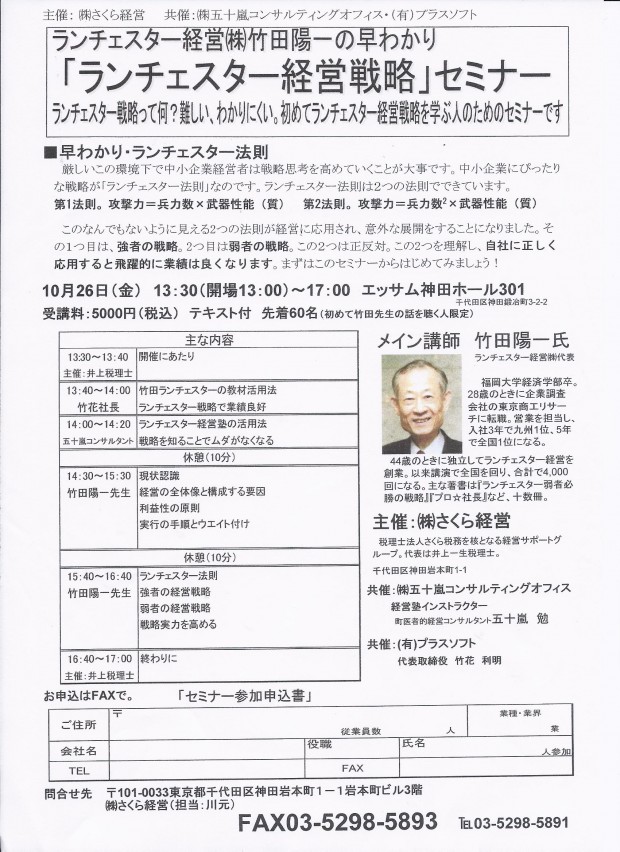 主催：㈱さくら経営　共催：㈱五十嵐コンサルティングオフィス・(有)プラスソフト
ランチェスター経営㈱竹田陽一の早わかり
「ランチェスター経営戦略」セミナー
ランチェスター戦略って何？難しい、わかりにくい。初めてランチェスター経営戦略を学ぶ人のためのセミナーです
■早わかり・ランチェスター法則
厳しいこの環境下で中小企業経営者は戦略思考を高めていくことが大事です。中小企業にぴったり
な戦略が「ランチェスター法則」なのです。ランチェスター法則は2つの法則でできています。
第1法則。攻撃力＝兵力数×武器性能（質）　第2法則。攻撃力＝兵力数²×武器性能（質）
このなんでもないように見える2つの法則が経営に応用され、意外な展開をすることになりました。そ
の1つ目は、強者の戦略。2つ目は弱者の戦略。この2つは正反対。この2つを理解し、自社に正しく
応用すると飛躍的に業績は良くなります。まずはこのセミナーからはじめてみましょう！
10月26日(金)　13:30(開場13:00)～17:00　エッサム神田ホール301
千代田区神田鍛冶町3-2-2
受講料：5000円(税込)　テキスト付　先着60名(初めて竹田先生の話を聴く人限定)
主な内容
13:30～13:40　開催にあたり
主催：井上税理士
13:40～14:00　竹田ランチェスターの教材活用法
竹花社長　ランチェスター戦略で業績良好
14:00～14:20　ランチェスター経営塾の活用法
五十嵐コンサルタント　戦略を知ることでムダがなくなる
休憩(10分)
14:30～15:30　現状認識
竹田陽一先生　経営の全体像と構成する要因
利益性の原則
実行の手順とウエイト付け
休憩(10分)
15:40～16:40　ランチェスター法則
竹田陽一先生　強者の経営戦略
弱者の経営戦略
戦略実力を高める
16:40～17:00　終わりに
主催：井上税理士
メイン講師　竹田陽一氏
ランチェスター経営㈱代表
福岡大学経済学部卒。
28歳のときに企業調査
会社の東京商工リサー
チに転職。営業を担当し、
入社3年で九州1位、5年
で全国1位になる。
44歳のときに独立してランチェスター経営を
創業。以来講演で全国を回り、合計で4,000
回になる。主な著書は『ランチェスター弱者必
勝の戦略』『プロ☆社長』など、十数冊。
主催：㈱さくら経営
税理士法人さくら税務を核となる経営サポートグ
ループ。代表は井上一生税理士。
千代田区神田岩本町1-1
共催：㈱五十嵐コンサルティングオフィス
経営塾インストラクター
町医者的経営コンサルタント五十嵐　勉
共催：(有)プラスソフト
代表取締役　竹花　利明
お申込はFAXで。　「セミナー参加申込書」
ご住所　〒　従業員数　人　業種・業界　業
会社名　役職　氏名　人参加
TEL　FAX
問合せ先　〒101-0033東京都千代田区神田岩本町1－1岩本町ビル3階
㈱さくら経営（担当：川元）
FAX03-5298-5893　℡03-5298-5891